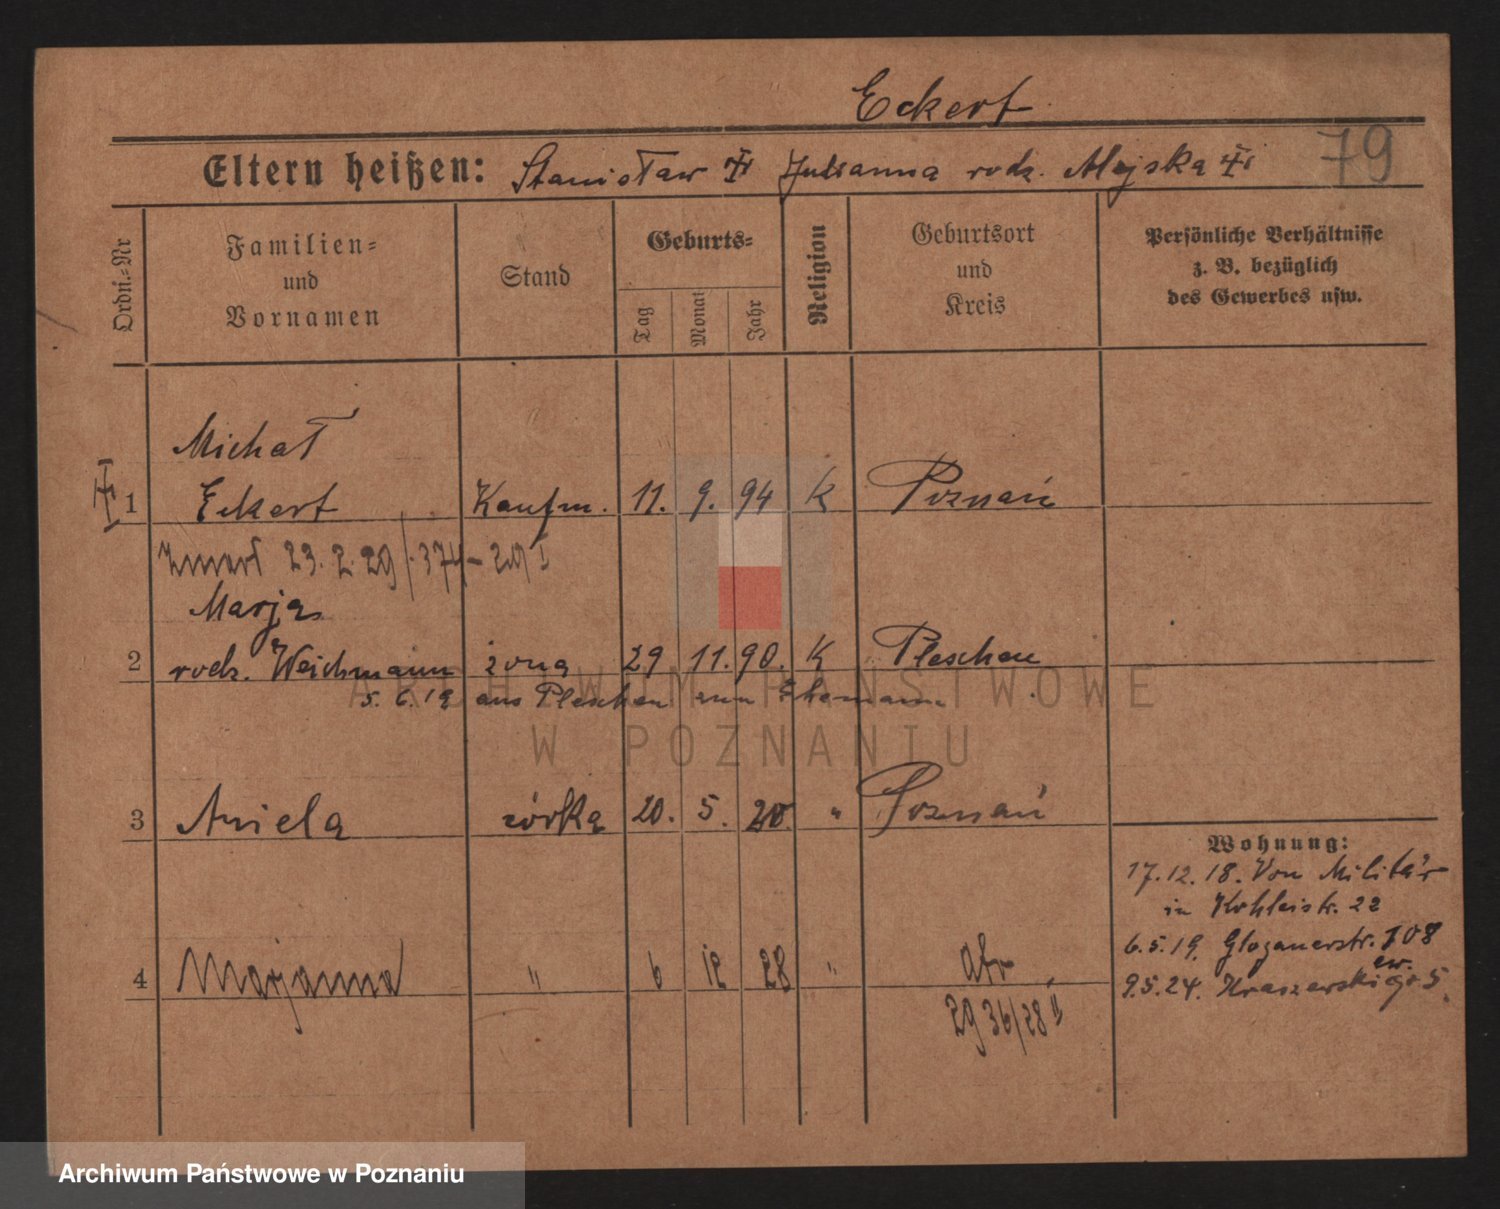 Eckert
79
Eltern heißen: Stanisław Julianna rodz. Alejska
Ordn.-Nr
Familien-
und
Vornamen
Stand
Geburts-
Tag
Monat
Jahr
Religion
Geburtsort
und
Kreis
Persönliche Verhältnisse
z. B. bezüglich
des Gewerbes usw.
Michał
1 Eckert Kaufm. 11. 9. 94 K Poznań
Zmarł 23. 2. 29 / 374 - 29 I
Marja
2 rodz. Weichmann żona 29 11. 90. K Pleschen
5. 6. 19 aus Pleschen zum Ehemann
ARCHIWUM PAŃSTWOWE
W POZNANIU
3 Aniela córka 20. 5. 20. " Poznań
Wohnung:
17.12.18. Von Militär
in Kohleistr. 22
6.5.19. Glogauerstr. 108
9.5.24. Kraszewskiego 5
4 Marjanna " 6 12 28 "
2936/28 II
Archiwum Państwowe w Poznaniu